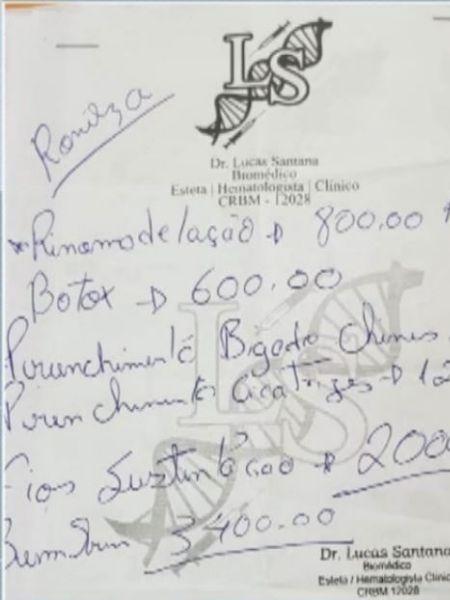 LS
Dr. Lucas Santana
Biomédico
Esteta | Hematologista | Clínico
CRBM - 12028
Ronilza
Rinomodelação → 800.00
Botox → 600.00
Preenchimento Bigode Chines
Preenchimento Cicatrizes →
Fios Sustentação → 200
3400.00
Dr. Lucas Santana
Biomédico
Esteta / Hematologista Clínic
CRBM 12028